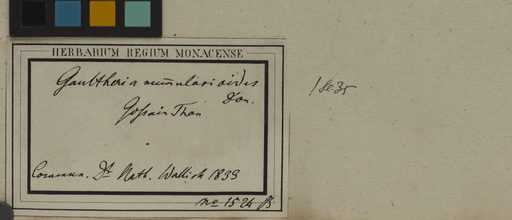 HERBARIUM REGIUM MONACENSE
Gaultheria nummularioides
Don.
Gossain Than
Commun. Dr Nath. Wallich 1833
no 1524 β